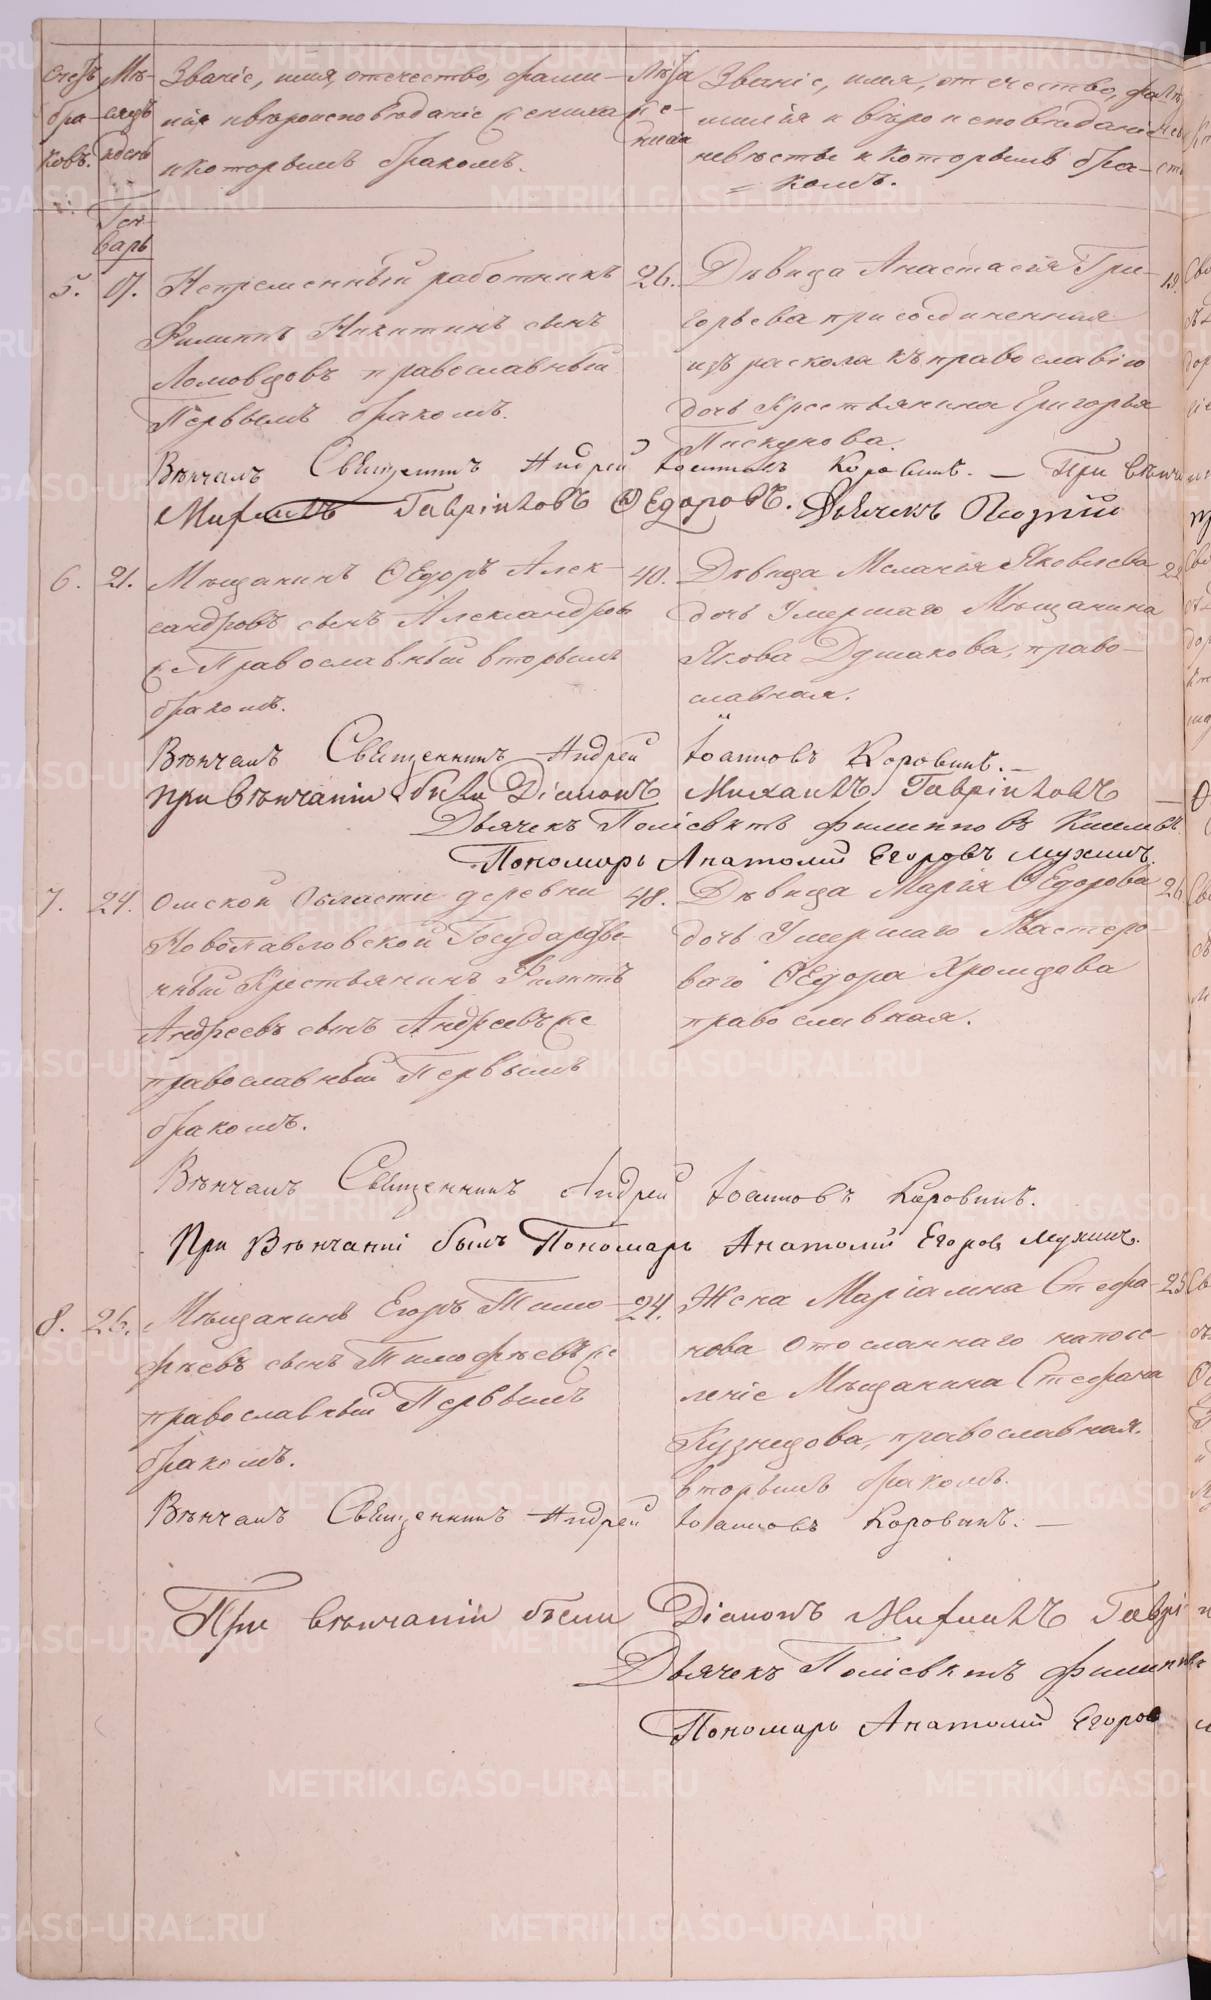 Счетъ браковъ.
Мѣсяцъ и день
Званіе, имя, отечество, фами-
лія и вѣроисповѣданіе жениха
и которымъ бракомъ.
Лѣта жениха
Званіе, имя, отечество, фа-
милія и вѣроисповѣданіе
невѣсты и которымъ бра-
= комъ.
Ген-
варь
5.
17.
Непременный работникъ
Филиппъ Никитинъ сынъ
Ломовцовъ православный
Первымъ бракомъ.
26.
Дѣвица Анастасія Гри-
горьева присоединенная
изъ раскола къ православію
дочь Крестьянина Григорья
Пискунова.
19.
Вѣнчалъ Священникъ Андрей Іоанновъ Коровинъ. — При вѣнча
Михаилъ Гавріиловъ Ѳедоровъ. Дьячекъ
6.
21.
Мѣщанинъ Ѳедоръ Алек-
сандровъ сынъ Александров
же Православный вторымъ
бракомъ.
40.
Дѣвица Меланія Яковлева
дочь Умершаго Мѣщанина
Якова Душакова, право-
славная.
Вѣнчалъ Священникъ Андрей Іоанновъ Коровинъ. —
при вѣнчаніи были Діаконъ Михаилъ Гавріиловъ
Дьячекъ Поліевктъ Филипповъ
Пономарь Анатолій Егоровъ Мухинъ.
7.
24.
Омской Области деревни
Новопавловской Государстве-
нный Крестьянинъ Филиппъ
Андреевъ сынъ Андреевъ же
православный Первымъ
бракомъ.
48.
Дѣвица Марія Ѳедорова
дочь Умершаго Мастеро-
ваго Ѳедора Хромцова
православная.
26
Вѣнчалъ Священникъ Андрей Іоанновъ Коровинъ.
При Вѣнчаніи былъ Пономарь Анатолій Егоровъ Мухинъ.
8.
26.
Мѣщанинъ Егоръ Тимо-
фѣевъ сынъ Тимофѣевъ же
православный Первымъ
бракомъ.
24.
Жена Маріамна Стефа-
нова Отосланнаго напосе-
леніе Мѣщанина Стефана
Кузнецова, православная.
вторымъ бракомъ.
25
Вѣнчалъ Священникъ Андрей Іоанновъ Коровинъ. —
При вѣнчаніи были Діаконъ Михаилъ Гаврі
Дьячекъ Поліевктъ Филиппов
Пономарь Анатолій Егоров
METRIKI.GASO-URAL.RU